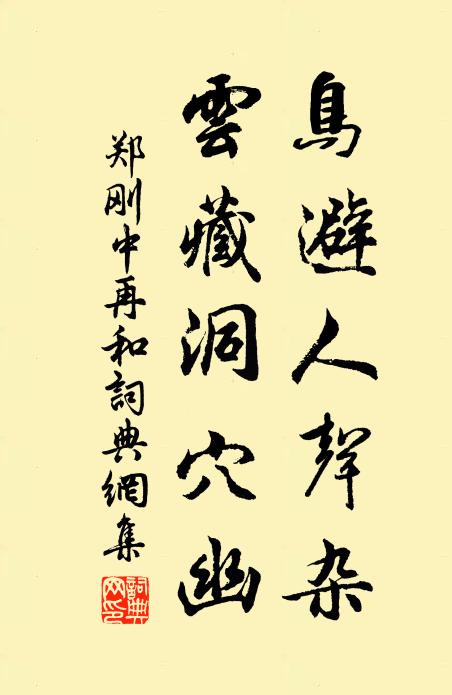 鳥避人聲杂
雲藏洞穴幽
郑刚中再和詞典網集
詞典网印